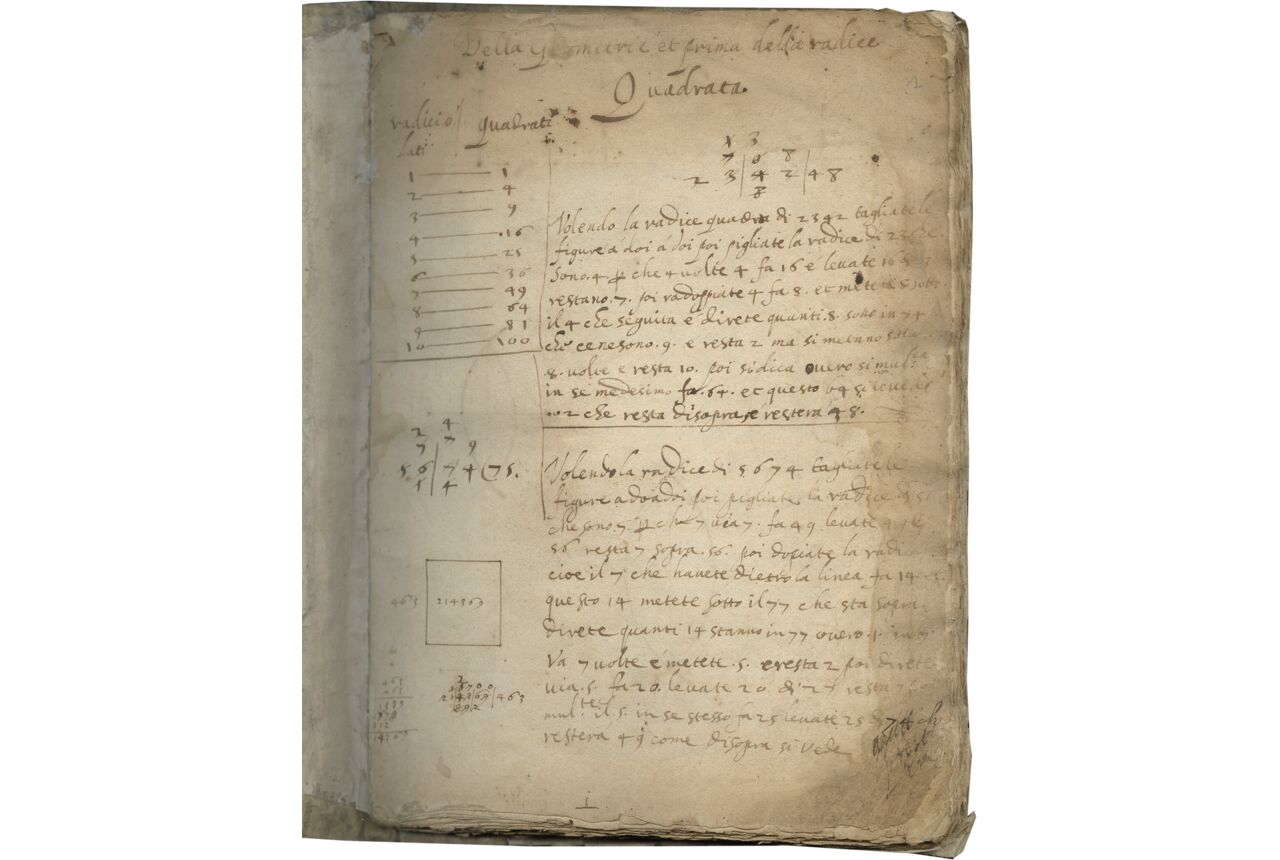 Della Geometric et prima della radice
Quadrata.
radici o quadrati
lati
1 1
2 4
3 9
4 16
5 25
6 36
7 49
8 64
9 81
10 100
1 3
7 0 8
2 3 4 2 4 8
8
Volendo la radice quadra di 2342 tagliate le
figure á doi á doi poi pigliate la radice di 23 che
sono .4. che 4 volte 4 fa 16 é levate 16
restano .7. poi radoppiate 4 fa 8. et metete 8 sotto
il 4 che seguita é direte quanti .8. sono in 74
che ce ne sono .9. e resta 2 ma si metano sola
8. volte e resta 10. poi si dica overo si mul
in se medesimo fa .64. et questo 64 si leve
che resta disopra, é restera 48.
2 4
7 7 9
5 6 7 4 (75.
1 4
Volendo la radice di 5674 tagliate le
figure a doi a doi poi pigliate la radice di
che sono 7. che 7 via 7. fa 49 levate
56 resta 7 sopra .56. poi dopiate la radi
cioe il 7 che havete dietro la linea fa 14
questo 14 metete sotto il 77 che sta sopra
direte quanti 14 stanno in 77 overo .1. in 7
Va 7 volte é metete .5. e resta 2 poi direte
via .5. fa 20. levate 20. di 27 resta
mul.te il .5. in se stesso fa 25 levate 25
restera 49 come disopra si vede
463 214369
463
1389
214369
463
1